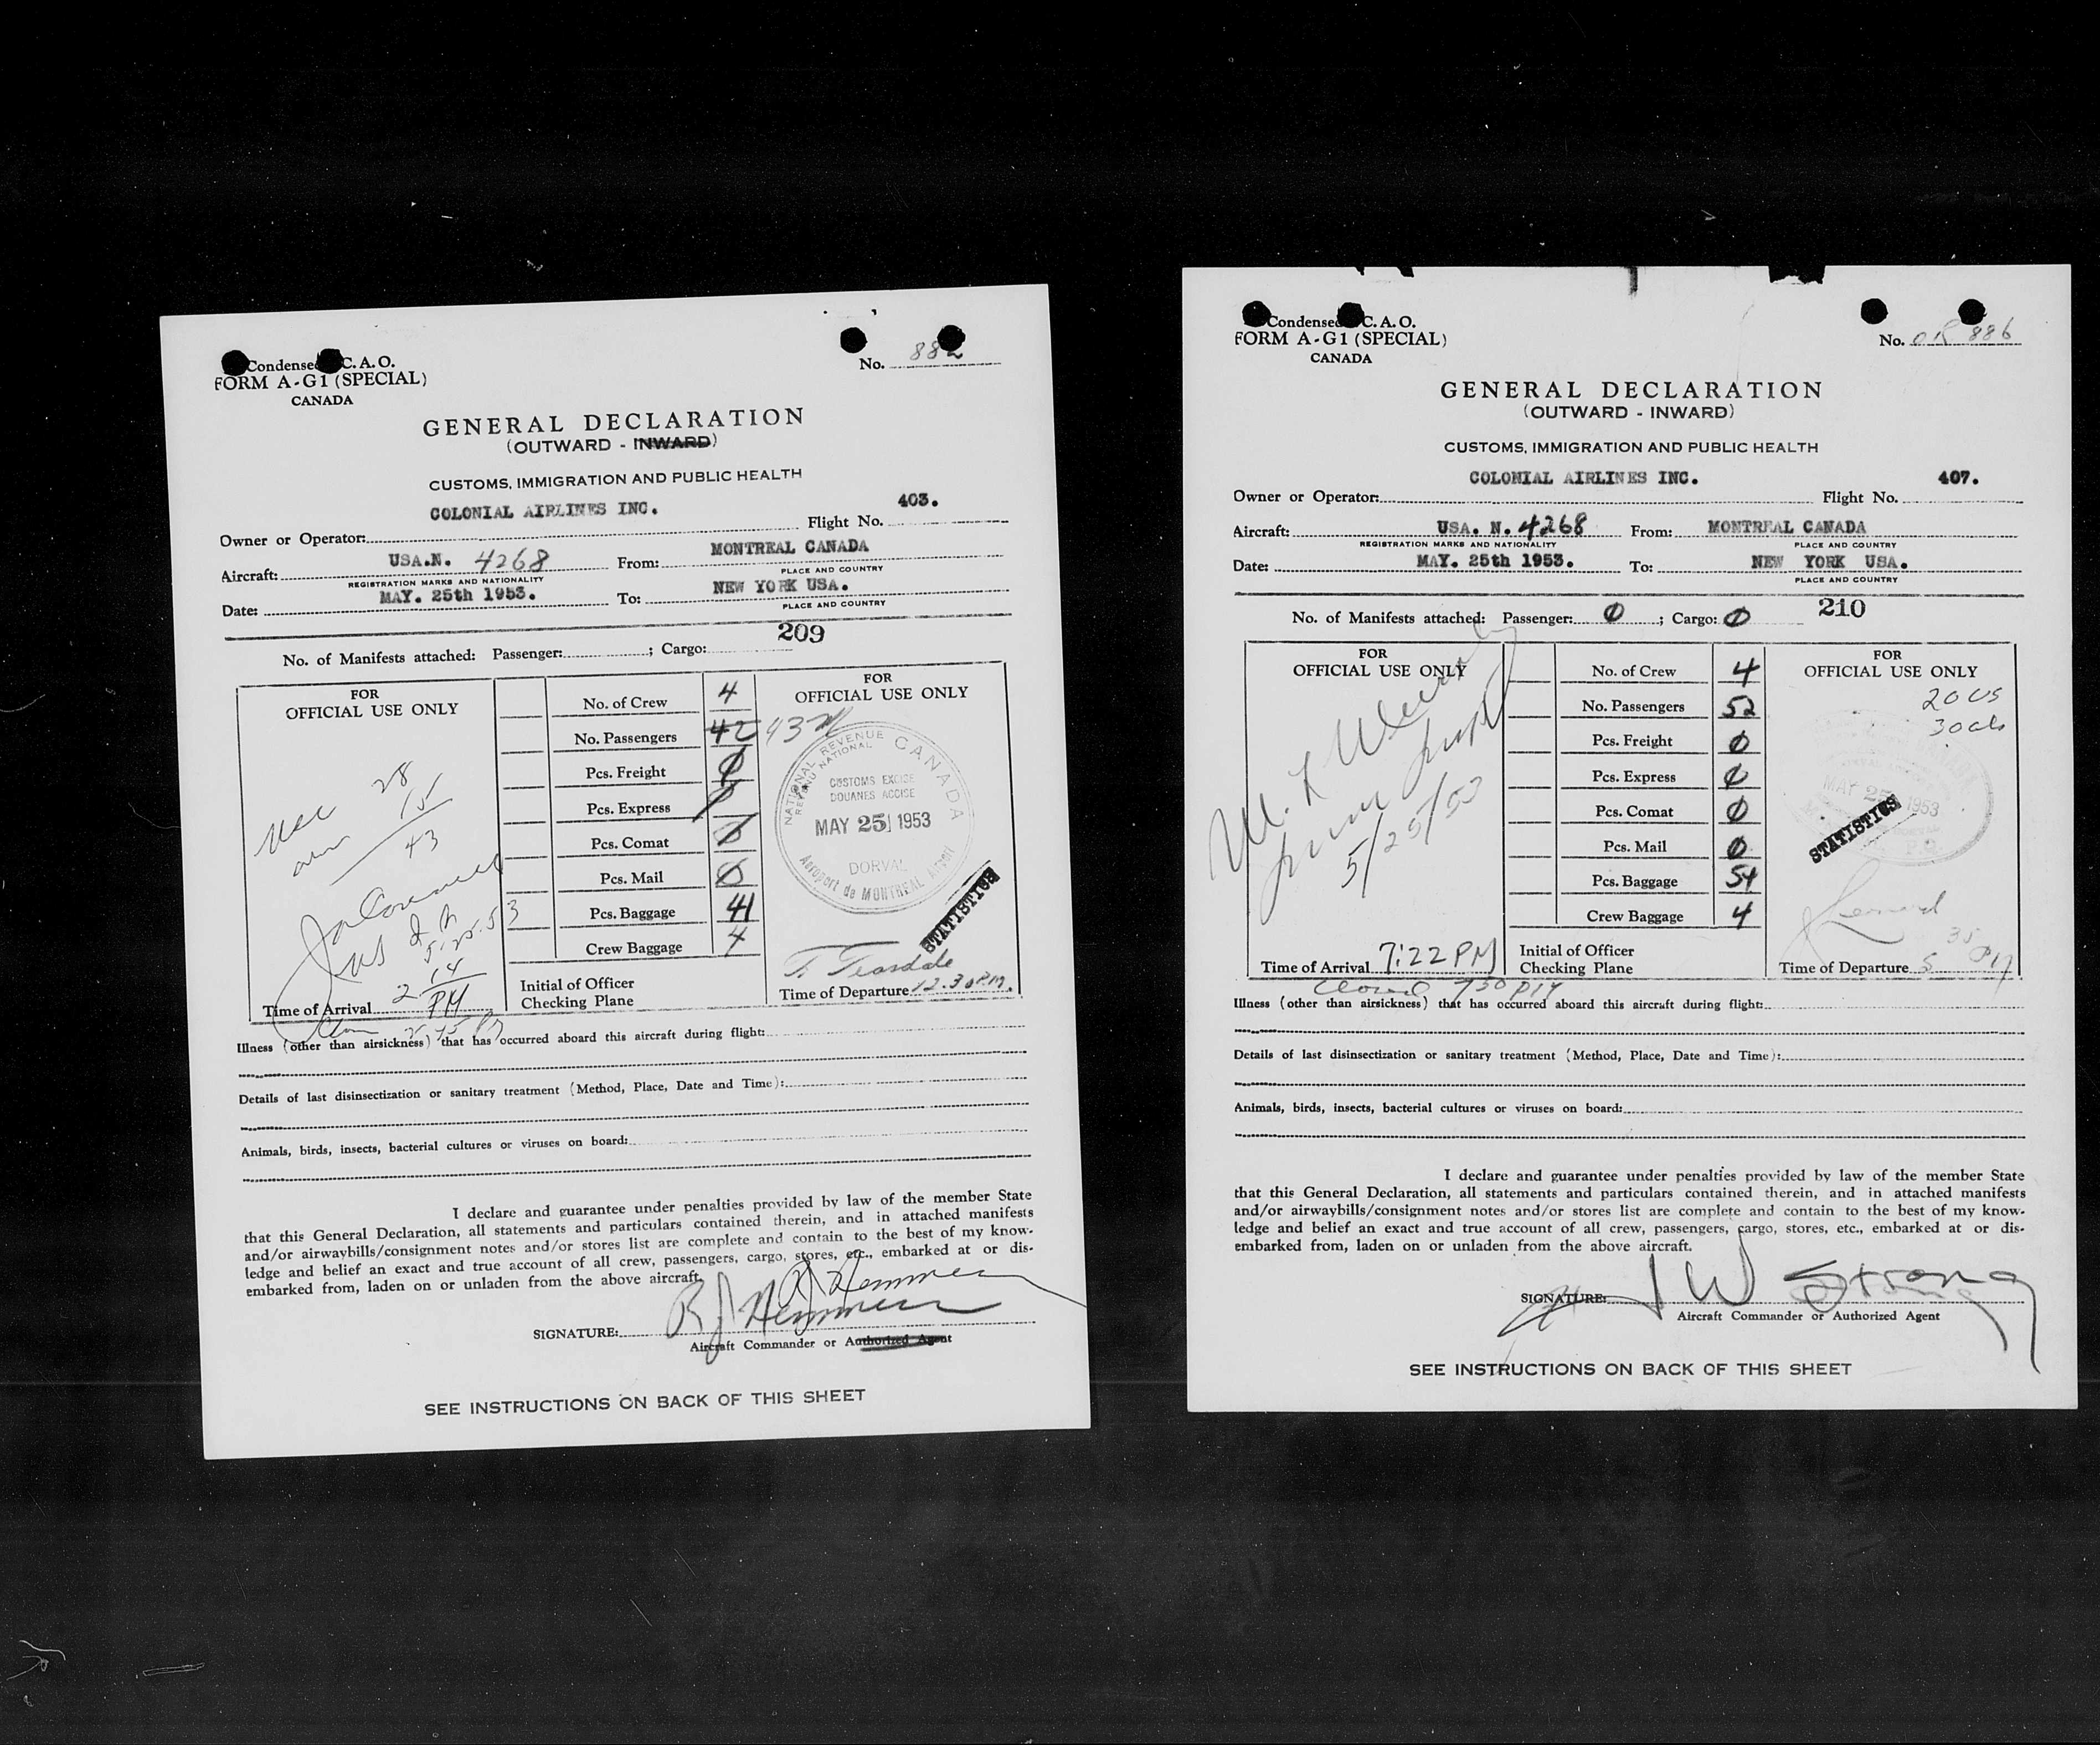 Condensed C. A. O.
FORM A-G1 (SPECIAL)
CANADA
No. 882
GENERAL DECLARATION
(OUTWARD - INWARD)
CUSTOMS, IMMIGRATION AND PUBLIC HEALTH
Owner or Operator: COLONIAL AIRLINES INC. Flight No. 403.
Aircraft: USA.N. 4268 From: MONTREAL CANADA
REGISTRATION MARKS AND NATIONALITY PLACE AND COUNTRY
Date: MAY. 25th 1953. To: NEW YORK USA.
PLACE AND COUNTRY
209
No. of Manifests attached: Passenger: ; Cargo:
FOR
OFFICIAL USE ONLY
28
15
43
5.25.53
2 14
PM
Time of Arrival
2 45 P
No. of Crew 4
No. Passengers 42 43
Pcs. Freight 0
Pcs. Express 0
Pcs. Comat 0
Pcs. Mail 0
Pcs. Baggage 41
Crew Baggage 4
Initial of Officer
Checking Plane
FOR
OFFICIAL USE ONLY
NATIONAL REVENUE CANADA
REVENU NATIONAL
CUSTOMS EXCISE
DOUANES ACCISE
MAY 25 1953
DORVAL
Aeroport de MONTREAL Airport
STATISTICS
T. Teasdale
Time of Departure 12.30 P.M.
Illness (other than airsickness) that has occurred aboard this aircraft during flight:
Details of last disinsectization or sanitary treatment (Method, Place, Date and Time):
Animals, birds, insects, bacterial cultures or viruses on board:
I declare and guarantee under penalties provided by law of the member State
that this General Declaration, all statements and particulars contained therein, and in attached manifests
and/or airwaybills/consignment notes and/or stores list are complete and contain to the best of my know-
ledge and belief an exact and true account of all crew, passengers, cargo, stores, etc., embarked at or dis-
embarked from, laden on or unladen from the above aircraft.
SIGNATURE:
Aircraft Commander or Authorized Agent
SEE INSTRUCTIONS ON BACK OF THIS SHEET
Condensed C. A. O.
FORM A-G1 (SPECIAL)
CANADA
No. OR 886
GENERAL DECLARATION
(OUTWARD - INWARD)
CUSTOMS, IMMIGRATION AND PUBLIC HEALTH
Owner or Operator: COLONIAL AIRLINES INC. Flight No. 407.
Aircraft: USA. N. 4268 From: MONTREAL CANADA
REGISTRATION MARKS AND NATIONALITY PLACE AND COUNTRY
Date: MAY. 25th 1953. To: NEW YORK USA.
PLACE AND COUNTRY
No. of Manifests attached: Passenger: 0 ; Cargo: 0 210
FOR
OFFICIAL USE ONLY
5/25/53
Time of Arrival 7:22 PM
Closed 730 PM
No. of Crew 4
No. Passengers 52
Pcs. Freight 0
Pcs. Express 0
Pcs. Comat 0
Pcs. Mail 0
Pcs. Baggage 54
Crew Baggage 4
Initial of Officer
Checking Plane
FOR
OFFICIAL USE ONLY
20 US
30
MAY 25 1953
STATISTICS
Time of Departure 5 35 PM
Illness (other than airsickness) that has occurred aboard this aircraft during flight:
Details of last disinsectization or sanitary treatment (Method, Place, Date and Time):
Animals, birds, insects, bacterial cultures or viruses on board:
I declare and guarantee under penalties provided by law of the member State
that this General Declaration, all statements and particulars contained therein, and in attached manifests
and/or airwaybills/consignment notes and/or stores list are complete and contain to the best of my know-
ledge and belief an exact and true account of all crew, passengers, cargo, stores, etc., embarked at or dis-
embarked from, laden on or unladen from the above aircraft.
SIGNATURE: J W Strong
Aircraft Commander or Authorized Agent
SEE INSTRUCTIONS ON BACK OF THIS SHEET